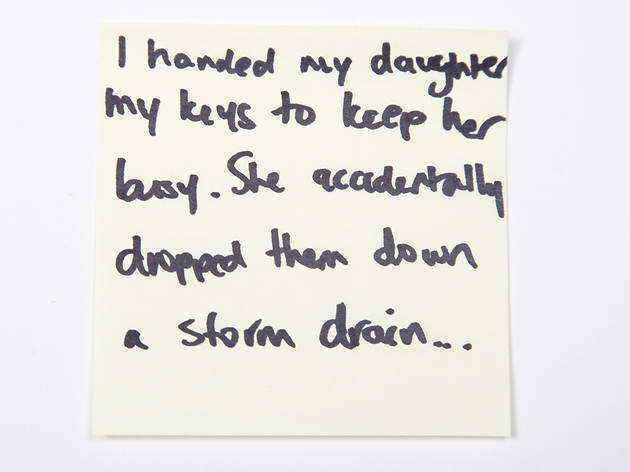 I handed my daughter
my keys to keep her
busy. She accidentally
dropped them down
a storm drain...